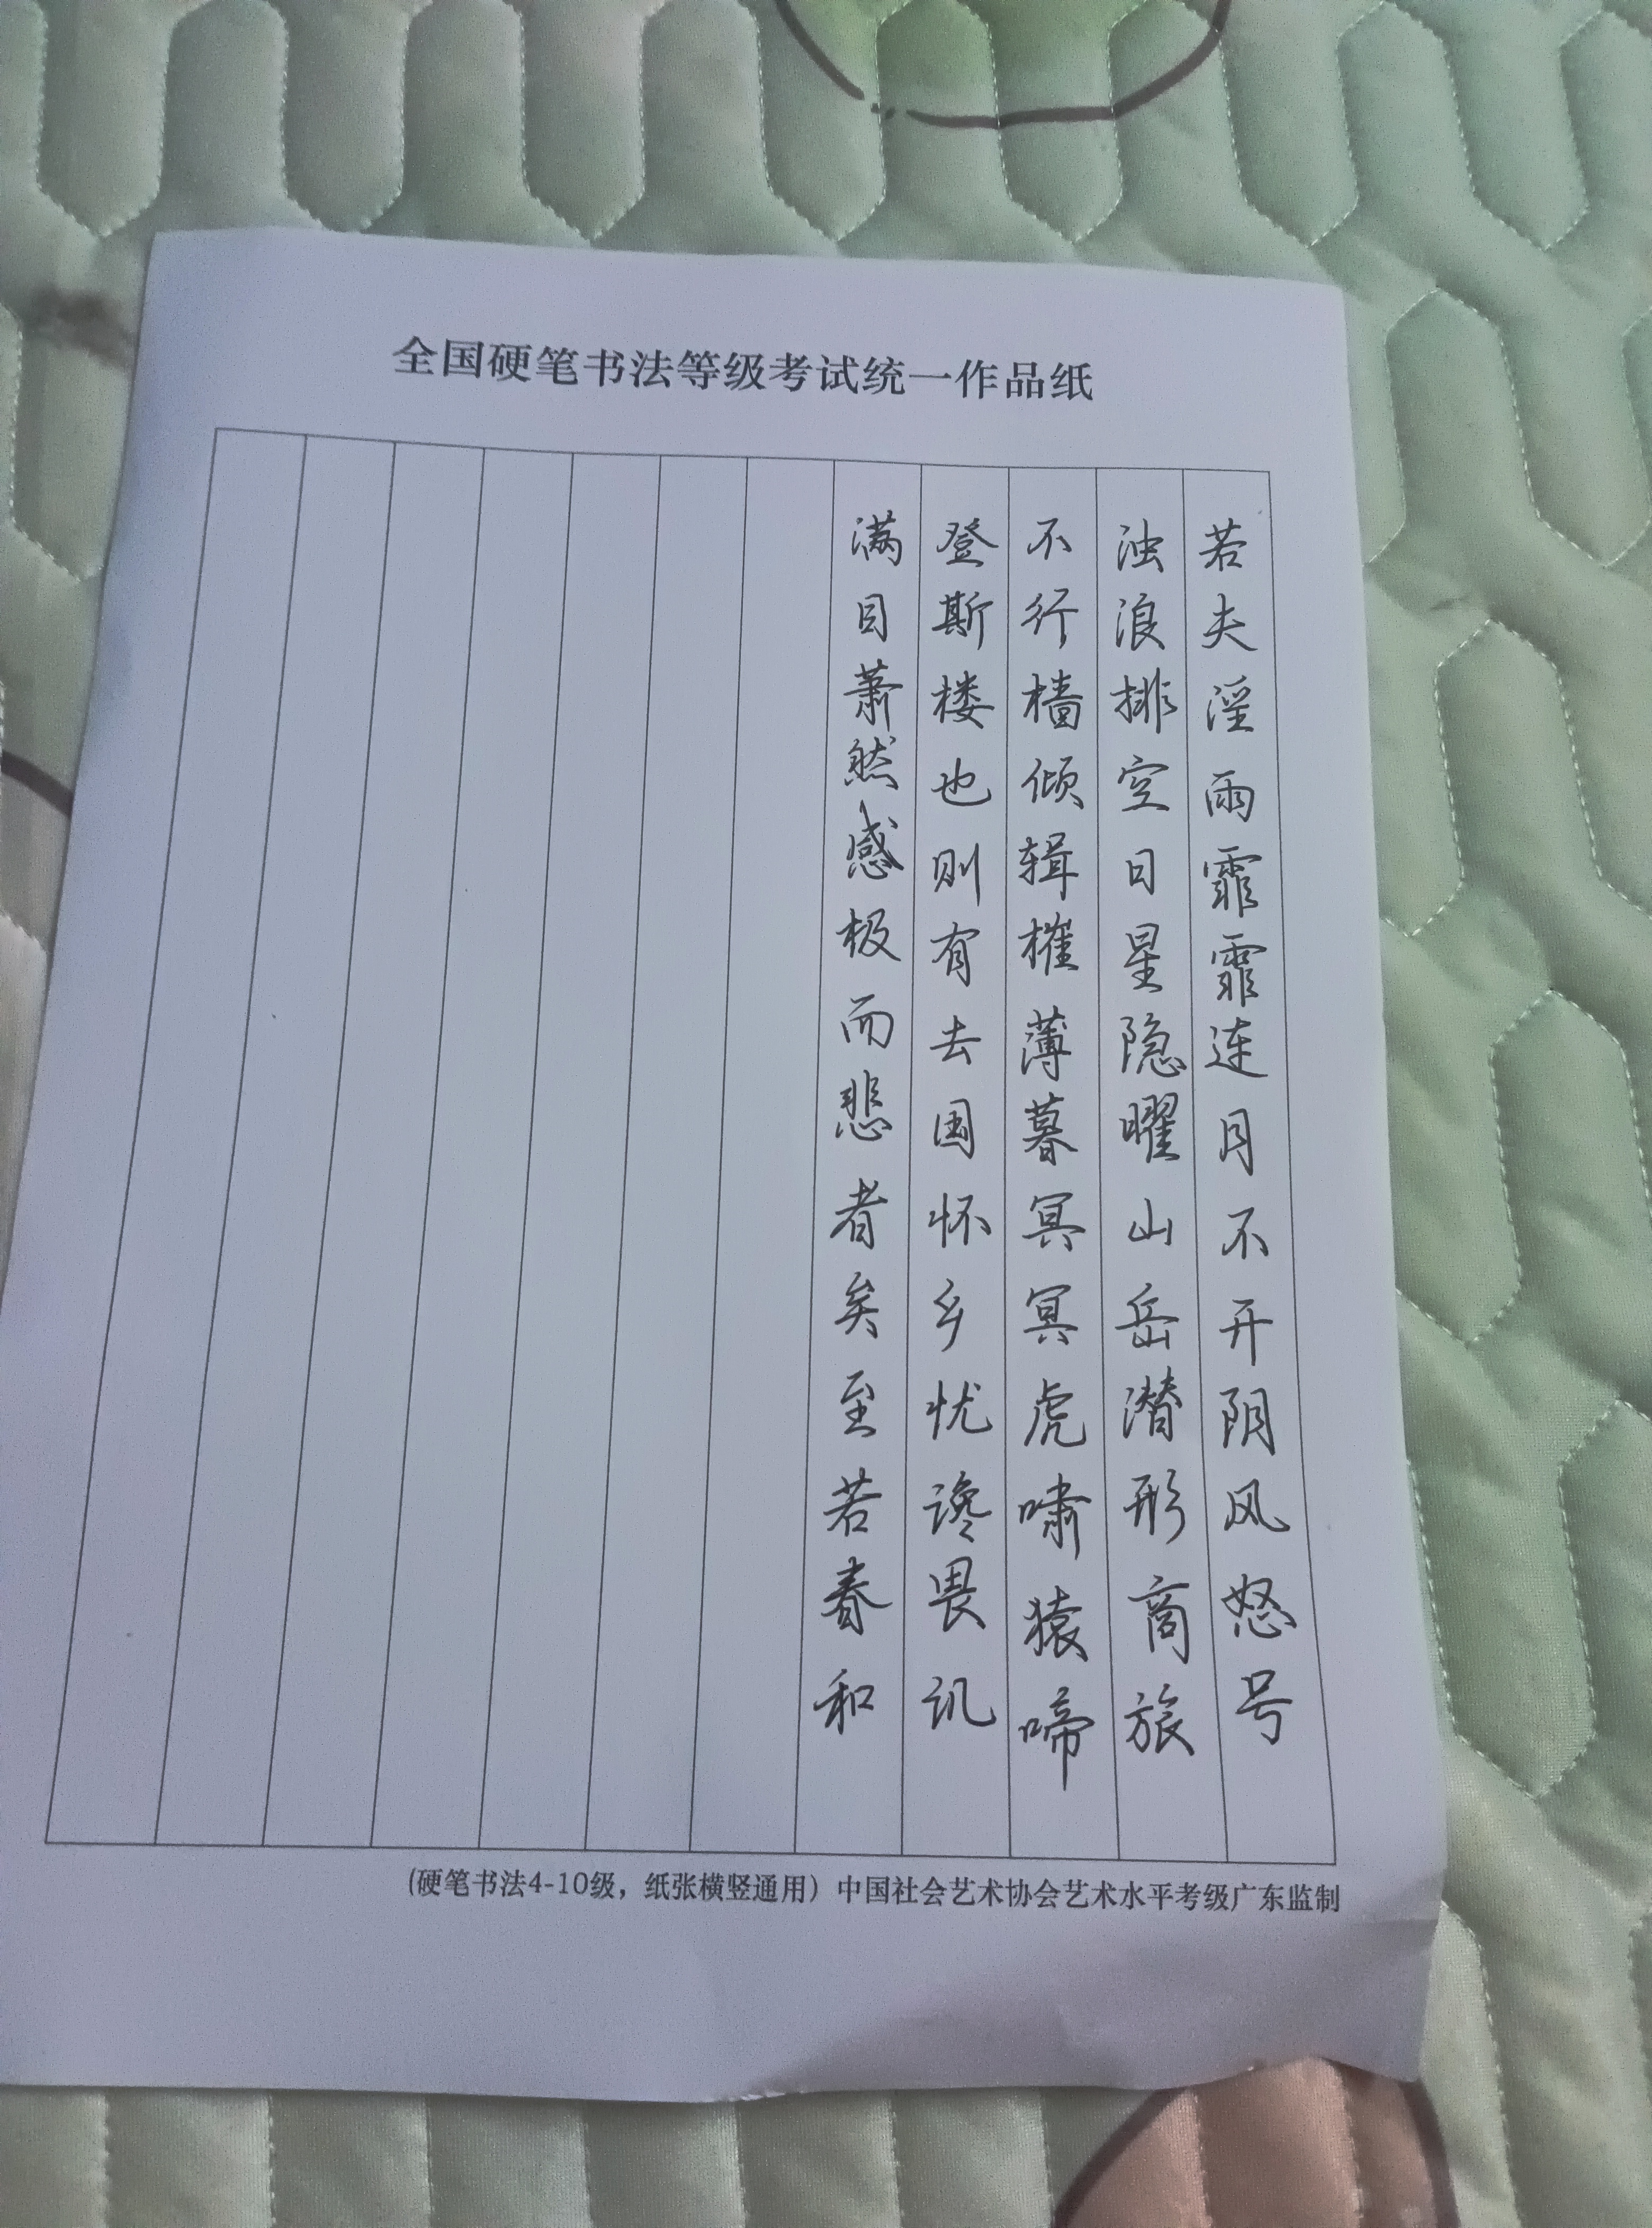 全国硬笔书法等级考试统一作品纸
若夫淫雨霏霏连月不开阴风怒号
浊浪排空日星隐曜山岳潜形商旅
不行樯倾辑榷薄暮冥冥虎啸猿啼
登斯楼也则有去国怀乡忧谗畏讥
满目萧然感极而悲者矣至若春和
(硬笔书法4-10级，纸张横竖通用) 中国社会艺术协会艺术水平考级广东监制